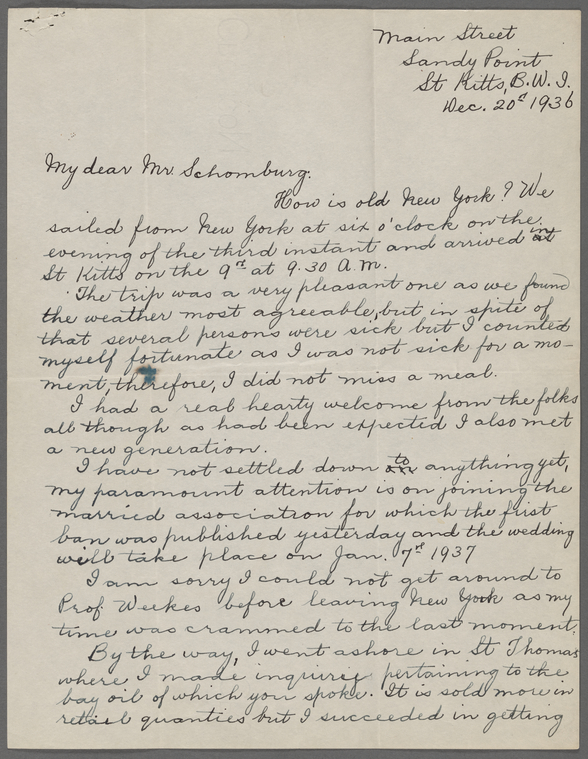 Main Street
Sandy Point
St Kitts, B.W.I.
Dec. 20th 1936
My dear Mr. Schomburg:
How is old New York? We
sailed from New York at six o'clock on the
evening of the third instant and arrived in
St Kitts on the 9th at 9.30 A.M.
The trip was a very pleasant one as we found
the weather most agreeable, but in spite of
that several persons were sick but I counted
myself fortunate as I was not sick for a mo-
ment, therefore, I did not miss a meal.
I had a real hearty welcome from the folks
all though as had been expected I also met
a new generation.
I have not settled down to anything yet,
my paramount attention is on joining the
married association for which the first
ban was published yesterday and the wedding
will take place on Jan. 7th 1937
I am sorry I could not get around to
Prof. Weekes before leaving New York as my
time was crammed to the last moment.
By the way, I went ashore in St Thomas
where I made inquiries pertaining to the
bay oil of which you spoke. It is sold more in
retail quanties but I succeeded in getting